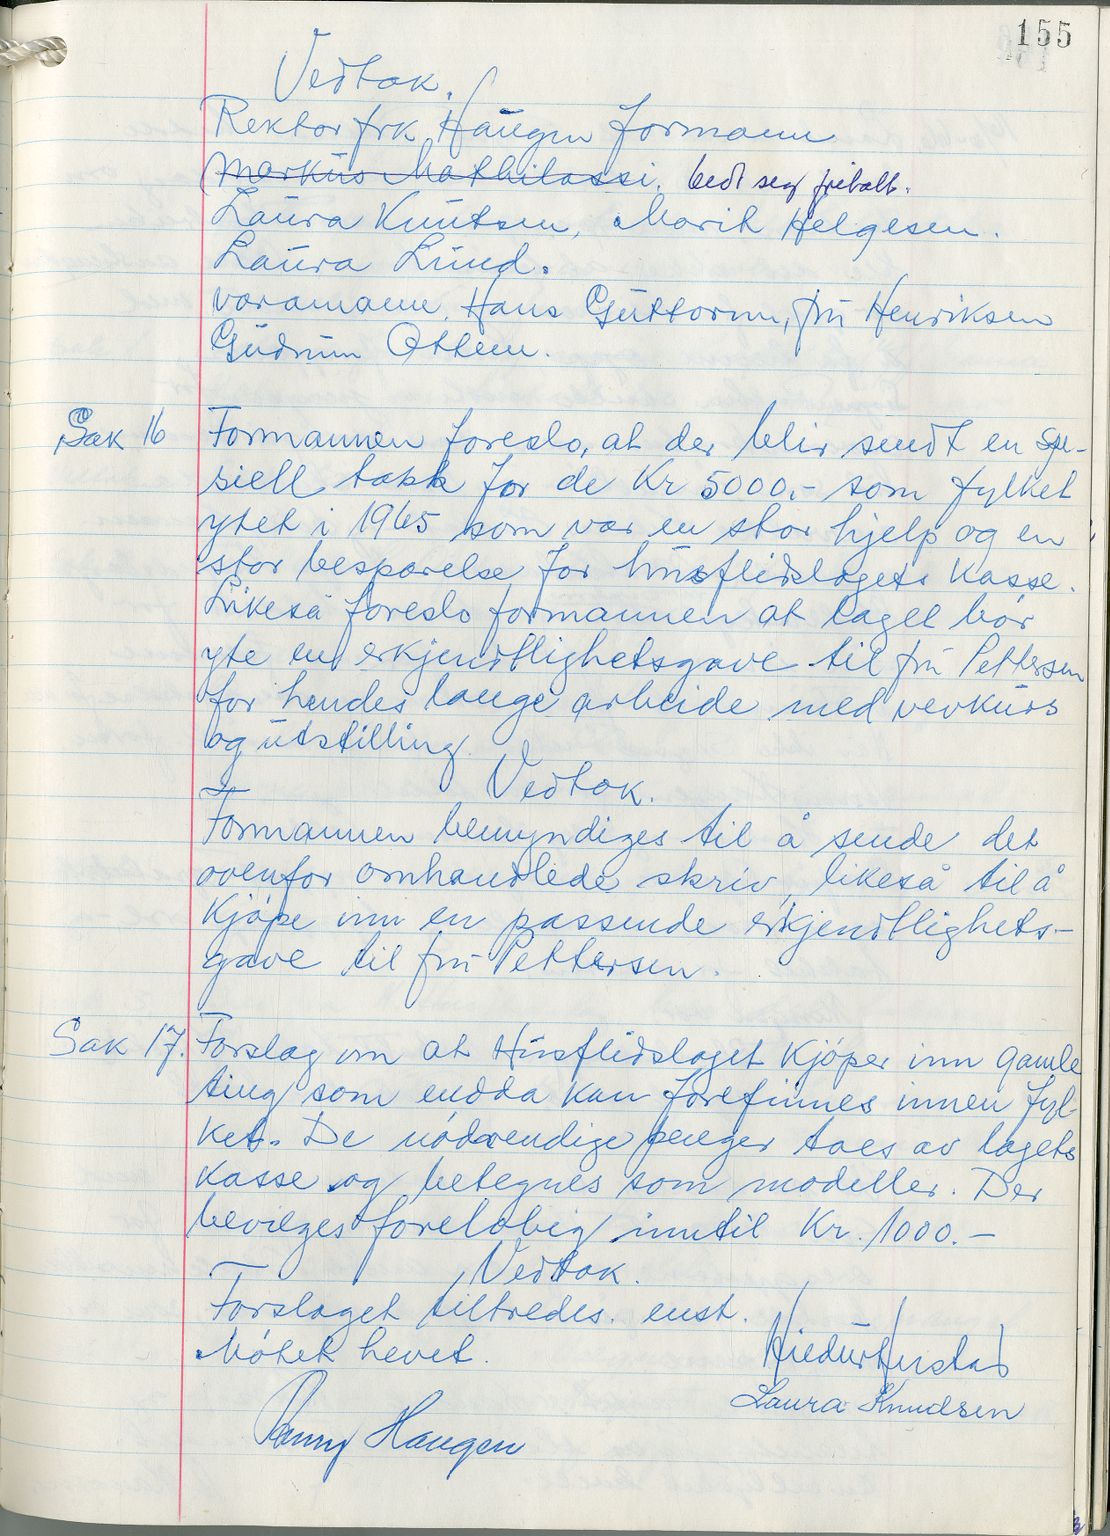 155
Vedtak.
Rektor frk. Haugen formann
Markus Mathilassi. bedt seg fritatt.
Laura Knutsen, Marit Helgesen.
Laura Lund.
varamann, Hans Guttorm, fru Henriksen
Gudrun Ottem.
Sak 16 Formannen foreslo, at der blir sendt en spe-
siell takk for de Kr 5000,- som fylket
ytet i 1965 som var en stor hjelp og en
stor besparelse for husflidslagets kasse.
Likeså foreslo formannen at laget bør
yte en erkjendtlighetsgave til fru Pettersen
for hendes lange arbeide med vevkurs
og utstilling.
Vedtak.
Formannen bemyndiges til å sende det
ovenfor omhandlede skriv, likeså til å
kjøpe inn en passende erkjendtlighets-
gave til fru Pettersen.
Sak 17. Forslag om at Husflidslaget kjøper inn gamle
ting som endda kan forefinnes innen fyl-
ket. De nødvendige penger taes av lagets
kasse og betegnes som modeller. Der
bevilges foreløbig inntil Kr. 1000.-
Vedtak.
Forslaget tiltredes. enst.
Møtet hevet.
Laura Knudsen
Fanny Haugen